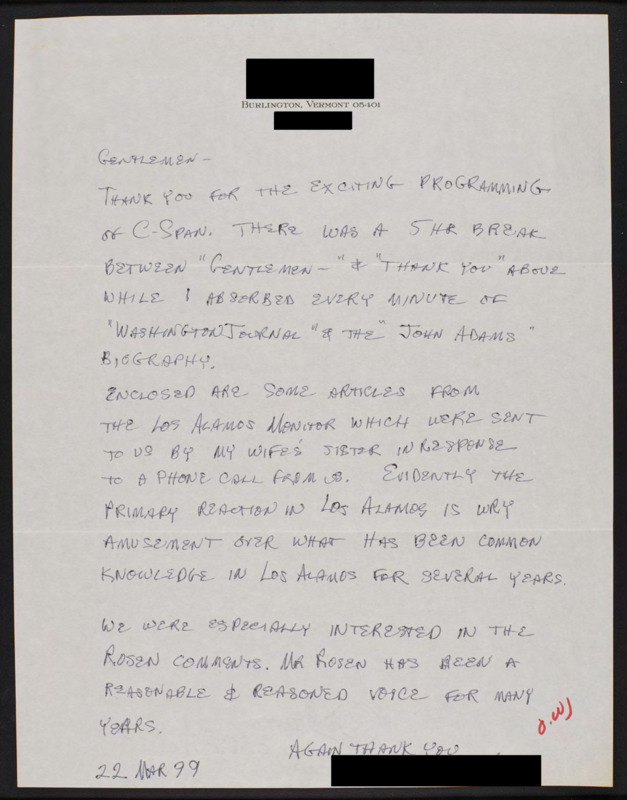 BURLINGTON, VERMONT 05401
GENTLEMEN –
THANK YOU FOR THE EXCITING PROGRAMMING
OF C-SPAN. THERE WAS A 5 HR BREAK
BETWEEN "GENTLEMEN –" & "THANK YOU" ABOVE
WHILE I ABSORBED EVERY MINUTE OF
"WASHINGTON JOURNAL" & THE "JOHN ADAMS"
BIOGRAPHY.
ENCLOSED ARE SOME ARTICLES FROM
THE LOS ALAMOS MONITOR WHICH WERE SENT
TO US BY MY WIFE'S SISTER IN RESPONSE
TO A PHONE CALL FROM US. EVIDENTLY THE
PRIMARY REACTION IN LOS ALAMOS IS WRY
AMUSEMENT OVER WHAT HAS BEEN COMMON
KNOWLEDGE IN LOS ALAMOS FOR SEVERAL YEARS.
WE WERE ESPECIALLY INTERESTED IN THE
ROSEN COMMENTS. MR ROSEN HAS BEEN A
REASONABLE & REASONED VOICE FOR MANY
YEARS.
AGAIN THANK YOU
22 MAR 99